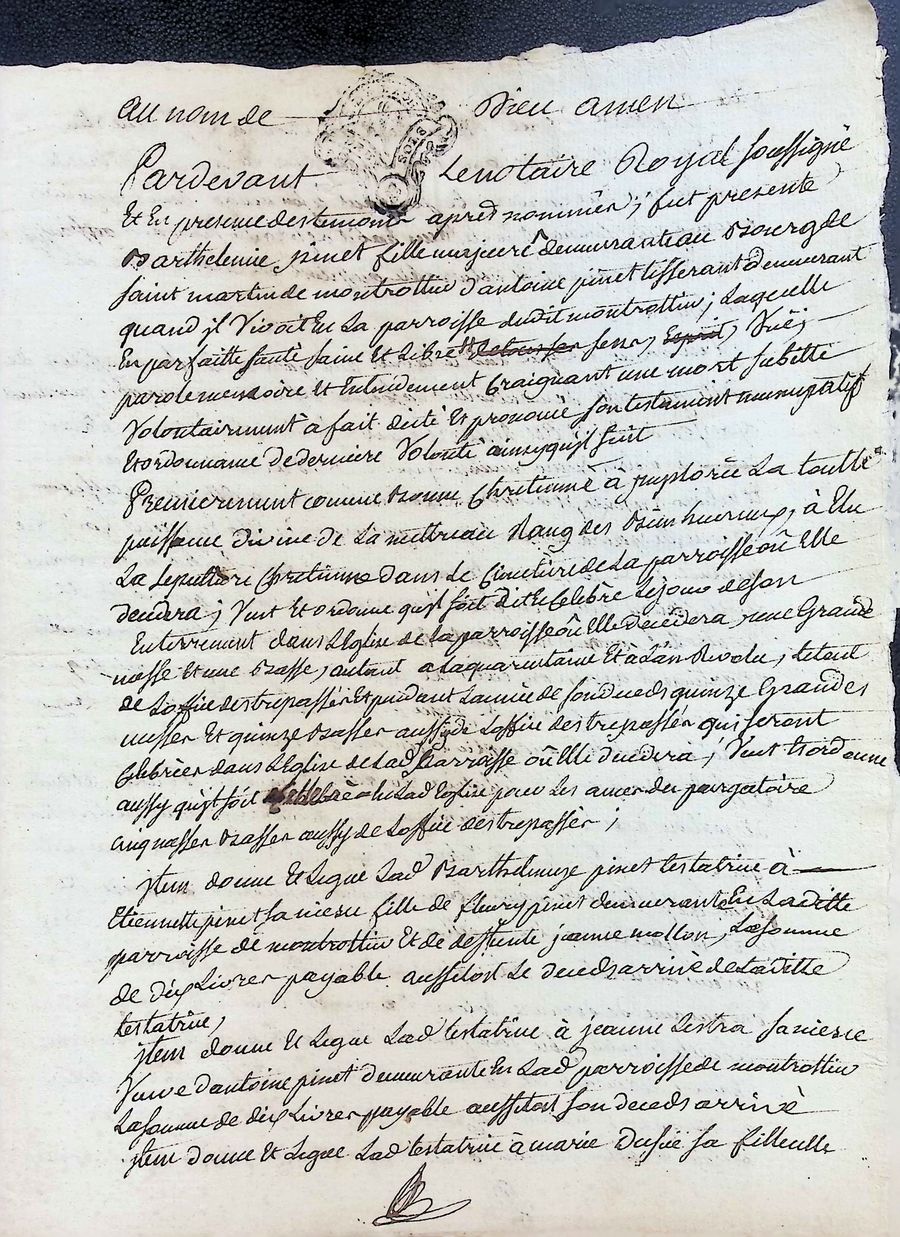 au nom de Dieu amen
Pardevant Le notaire Royal soussigné
Et En presence des temoins apres nommés; fut presente
Barthelemie pinet fille majeure demeurante au Bourg de
saint martin de montrottier d'antoine pinet tisserant demeurant
quand jl Vivoit En La parroisse dudit montrottier; Laquelle
En parfaitte santé saine Et Libre de tous ses sens, Esprit, Vüe,
parole memoire Et Entendement Craignant une mort subitte
Volontairement a fait dicté Et prononcé son testament nuncupatif
Et ordonnance de derniere Volonté ainsy qujl suit
Premierement comme Bonne Chretienne à jmplorée La toutte
puissance divine de La mettre au Rang des Bien heureux, à Elu
La sepulture Chretienne dans Le Cimetiere de La parroisse où Elle
decedera; Veut Et ordonne qujl soit dit Et Celebré Le jour de son
Enterrement dans L'Eglise de La parroisse où Elle decedera, une Grande
messe Et une Basse, autant a La quarantaine Et à L'an Revolu, Le tout
de L'office des trepassés Et pendant L'année de son deceds quinze Grandes
messes Et quinze Basses aussy de L'office des trepassés qui seront
Celebrées dans L'Eglise de Lad parroisse où Elle decedera; Veut Et ordonne
aussy qujl soit Celebré a Lad Eglise pour Les ames du purgatoire
cinq messes Basses aussy de L'office des trepassés;
jtem donne Et Legue Lad Barthelemye pinet testatrice à
Etiennette pinet sa niece fille de fleury pinet demeurante En Laditte
parroisse de montrottier Et de deffunte jeanne mollon, La somme
de dix Livres payable aussitost Le deceds arrivé de Laditte
testatrice,
jtem donne Et Legue Lad testatrice à jeanne Lestra sa niece
Veuve d'antoine pinet demeurante En Lad parroisse de montrottier
La somme de dix Livres payable aussitost son deceds arrivé
jtem donne Et Legue Lad testatrice à marie sa filleulle